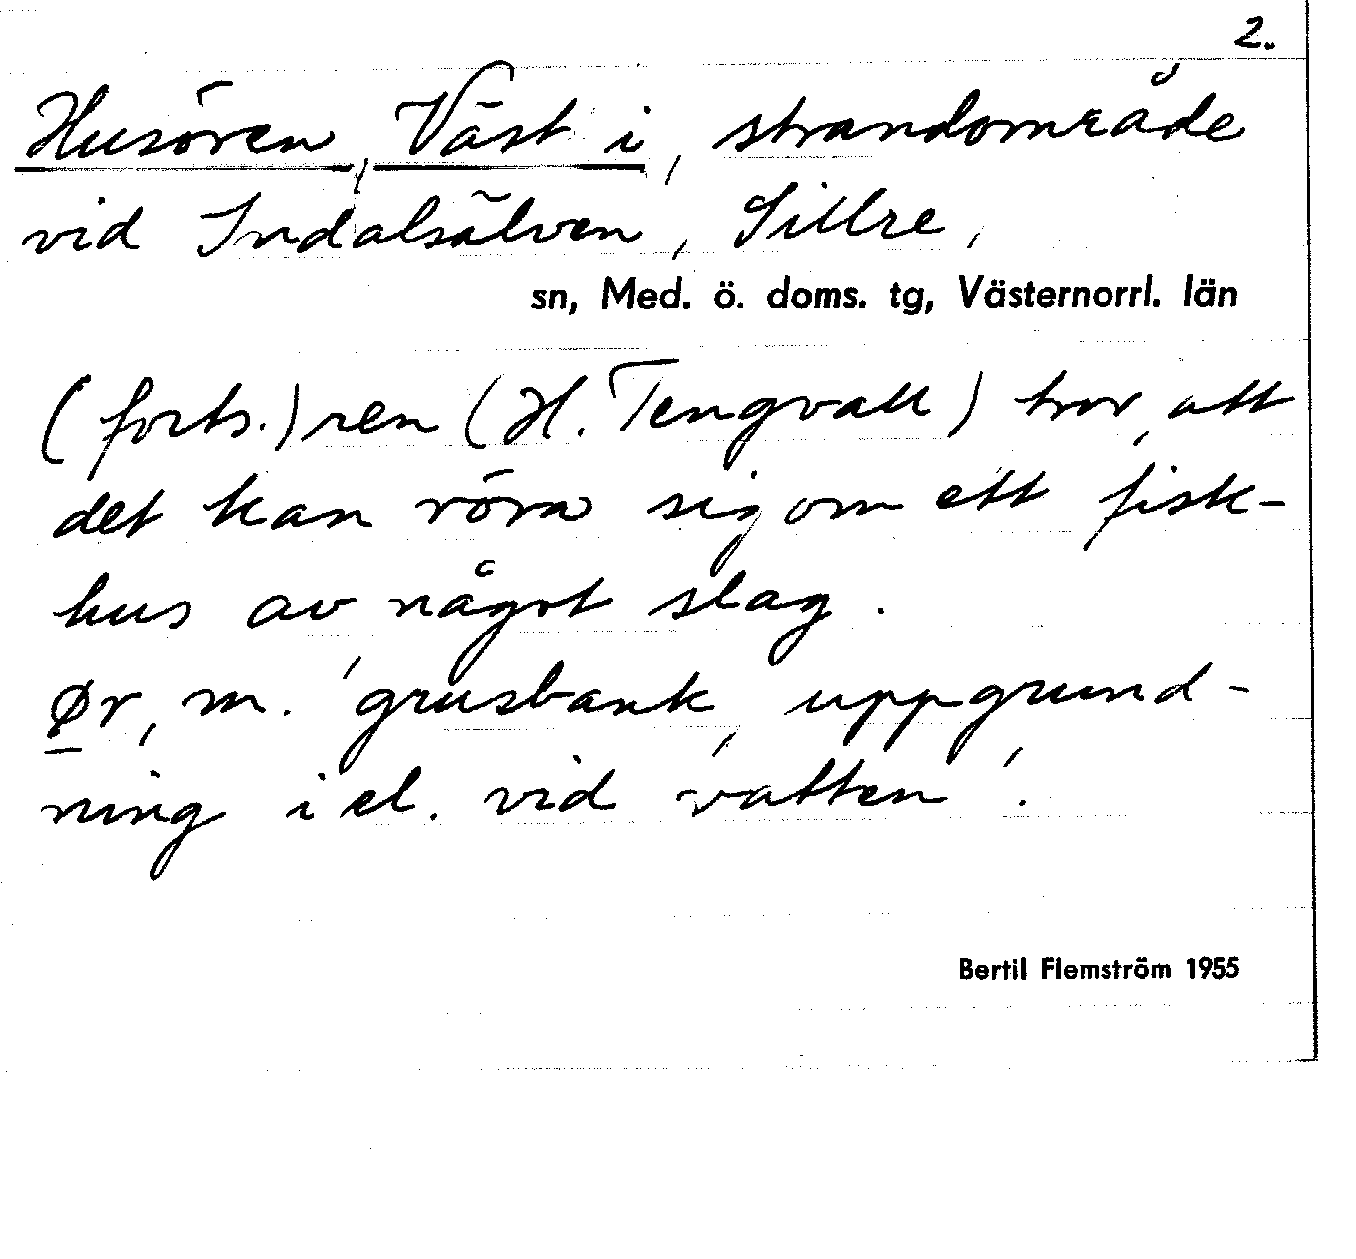 2.
Husören, Väst i, strandområde
vid Indalsälven, Sillre,
sn, Med. ö. doms. tg, Västernorrl. län
(forts.) ren (H. Tengvall) tror, att
det kan röra sig om ett fisk-
hus av något slag.
Ør, m. 'grusbank, uppgrund-
ning i el. vid vatten'.
Bertil Flemström 1955